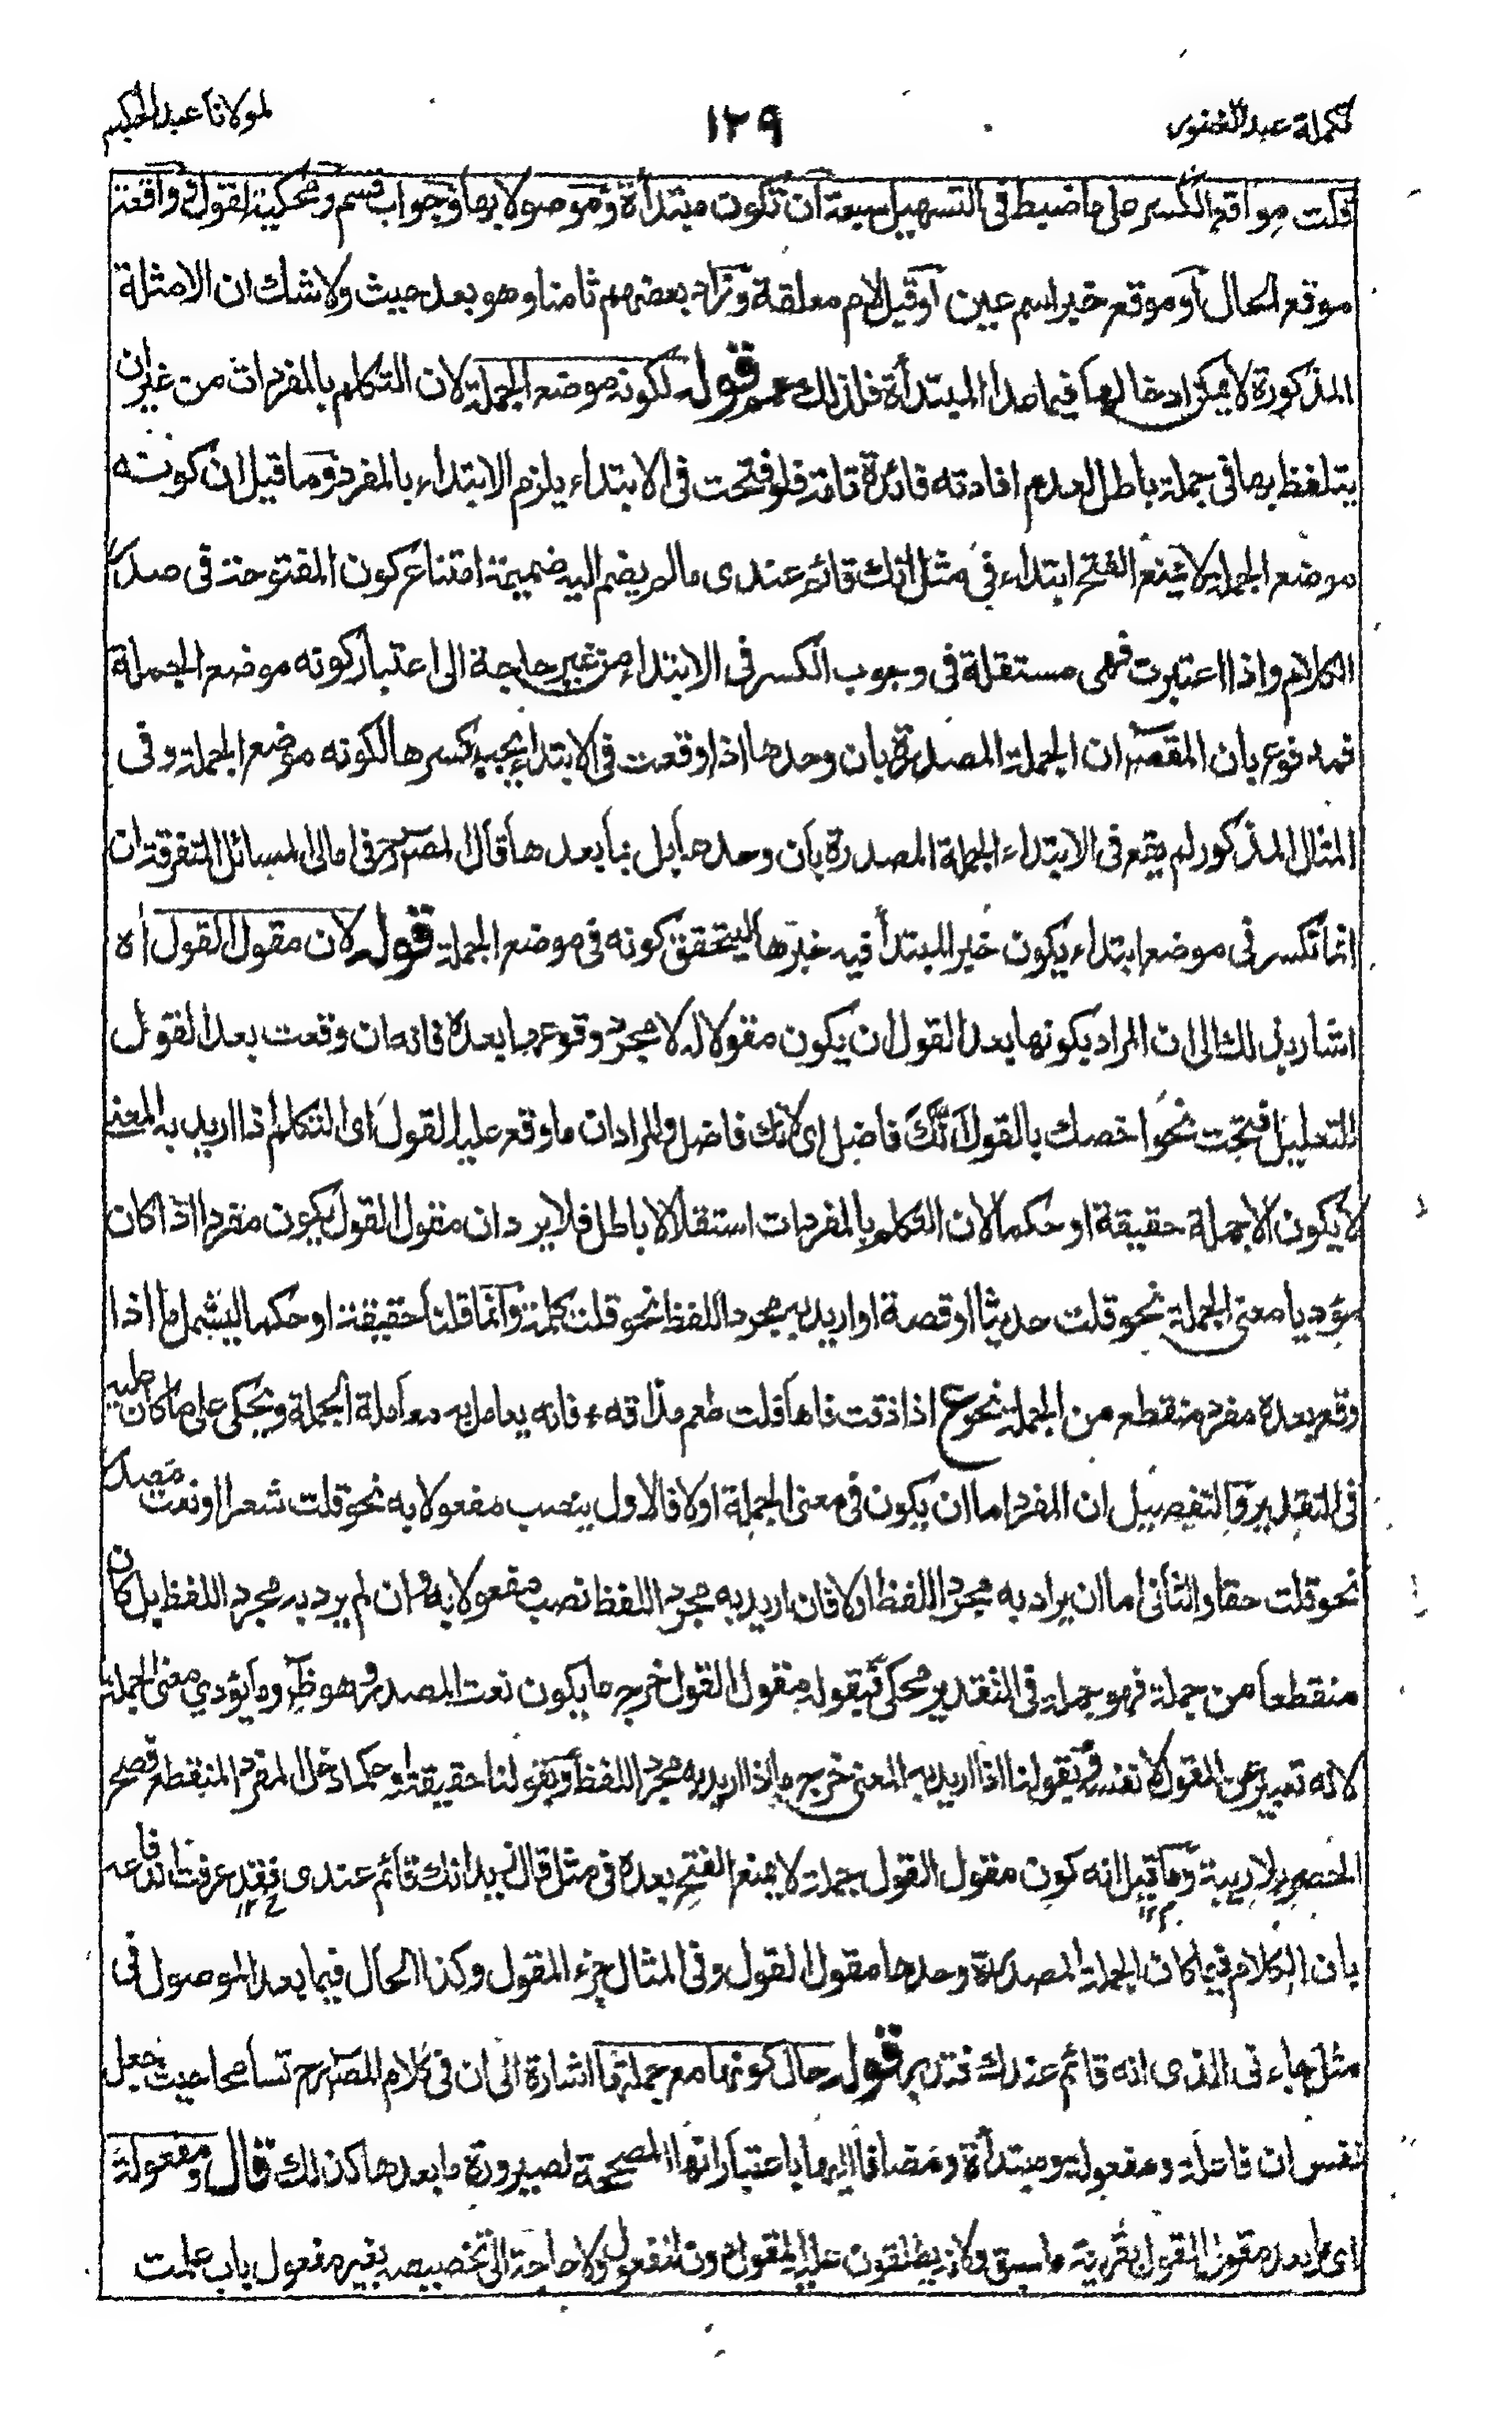 تكملة عبد الغفور
١٢٩
لمولانا عبد الحكيم
قلت مواقع الكسر على ما ضبط في التسهيل سبعة ان تكون مبتدأة وموصولا بها وجواب قسم ومحكية لقول او واقعة
موقع الحال او موقع خبر اسم عين او قبل لام معلقة وزاد بعضهم ثامنا وهو بعد حيث ولا شك ان الامثلة
المذكورة لا يمكن ادخالها فيما عدا المبتدأة فلذلك عمم قوله لكونه موضع الجملة لان التكلم بالمفردات من غير ان
يتلفظ بها في جملة باطل لعدم افادته فائدة تامة فلو فتحت في الابتداء يلزم الابتداء بالمفرد وما قيل ان كونه
موضع الجملة لا يمنع الفتح ابتداء في مثل انك قائم عندي ما لم يضم اليه ضميمة امتناع كون المفتوحة في صدر
الكلام واذا اعتبرت فهى مستقلة في وجوب الكسر في الابتداء من غير حاجة الى اعتبار كونه موضع الجملة
فمدفوع بان المقصود ان الجملة المصدرة بان وحدها اذا وقعت في الابتداء يجب كسرها لكونه موضع الجملة وفي
المثال المذكور لم يقع في الابتداء الجملة المصدرة بان وحدها بل بما بعدها قال المصرح في امالى المسائل المتفرقة ان
انما تكسر في موضع ابتداء يكون خبر المبتدأ فيه خبرها ليتحقق كونه في موضع الجملة قوله لان مقول القول اه
اشار بذلك الى ان المراد بكونها بعد القول ان يكون مقولا له لا مجرد وقوعها بعده فانه ان وقعت بعد القول
للتعليل فتحت نحو اخصك بالقول انك فاضل اى لانك فاضل والمراد ان ما وقع عليه القول اى التكلم اذا اريد به المعنى
لا يكون الا جملة حقيقة او حكما لان التكلم بالمفردات استقلالا باطل فلا يرد ان مقول القول يكون مفردا اذا كان
مؤديا معنى الجملة نحو قلت حديثا او قصة او اريد به مجرد اللفظ نحو قلت كلمة وانما قلنا حقيقة او حكما ليشمل ما اذا
وقع بعده مفرد منقطع من الجملة نحو ع اذا ذقت فاها قلت طعم مذاقه ٭ فانه يعامل به معاملة الجملة ويحكى على ما كان عليه
في التقدير والتفصيل ان المفرد اما ان يكون في معنى الجملة او لا فالاول ينصب مفعولا به نحو قلت شعرا او نعت مصدر
نحو قلت حقا والثاني اما ان يراد به مجرد اللفظ او لا فان اريد به مجرد اللفظ نصب مفعولا به وان لم يرد به مجرد اللفظ بل كان
منقطعا من جملة فهو جملة في التقدير محكى فبقوله مقول القول خرج ما يكون نعت المصدر وهو ظ وما يؤدي معنى الجملة
لانه تعبير عن المقول لا نفسه وبقولنا اذا اريد به المعنى خرج ما اذا اريد به مجرد اللفظ وبقولنا حقيقة او حكما دخل المفرد المنقطع فصح
الحصر بلا ريبة وما قيل انه كون مقول القول جملة لا يمنع الفتح بعده في مثل قال زيد انك قائم عندي فقد عرفت اندفاعه
بان الكلام فيما كان الجملة المصدرة وحدها مقول القول وفي المثال جزء المقول وكذا الحال فيما بعد الموصول في
مثل جاء في الذى انه قائم عندك فتدبر قوله حال كونها مع جملتها اشارة الى ان في كلام المصرح تسامحا حيث جعل
نفس ان فاعلة ومفعولة ومبتدأة ومضافا اليها باعتبار انها المصححة لصيرورة ما بعدها كذلك قال ومفعولة
اى ما بعد مقول القول بقرينة ما سبق ولانه يطلقون عليه المقول دون المفعول ولا حاجة الى تخصيصه بغير مفعول باب علمت